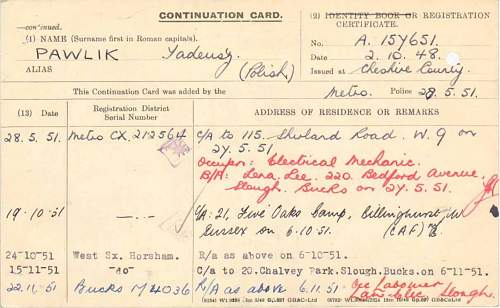 CONTINUATION CARD.
—continued.
(1) NAME (Surname first in Roman capitals).
PAWLIK Tadeusz
ALIAS (Polish)
(2) IDENTITY BOOK OR REGISTRATION CERTIFICATE.
No. A. 154651.
Date 2. 10. 48.
Issued at Cheshire County
This Continuation Card was added by the Metro. Police 28. 5. 51.
(13) Date
Registration District Serial Number
ADDRESS OF RESIDENCE OR REMARKS
28. 5. 51. Metro CX. 212564 C/A to 115. Road. W. 9 on
27. 5. 51.
Occupn: Electrical Mechanic.
B/A: Lee. 220. Bedford Avenue,
Slough. Bucks on 27. 5. 51.
19-10-51 —.— C/A: 21, Five Oaks Camp, Billinghurst, W
Sussex on 6.10.51. (CAF)
24-10-51 West Sx. Horsham. R/a as above on 6-10-51.
15-11-51 -do- C/a to 20, Chalvey Park. Slough. Bucks. on 6-11-51.
22.11.51 Bucks 174036 R/A as above 6.11.51. Occ Labourer
Slough